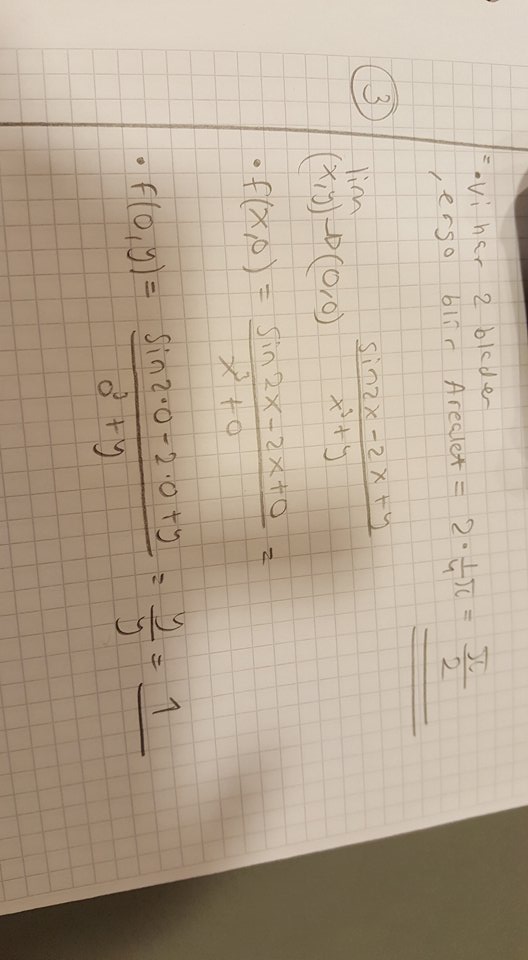 = • Vi har 2 blader
, ergo blir Arealet = 2 · 1/4 π = π/2
③
lim (x,y)→(0,0) (sin2x - 2x + y)/(x³ + y)
• f(x,0) = (sin2x - 2x + 0)/(x³ + 0) =
• f(0,y) = (sin2·0 - 2·0 + y)/(0³ + y) = y/y = 1